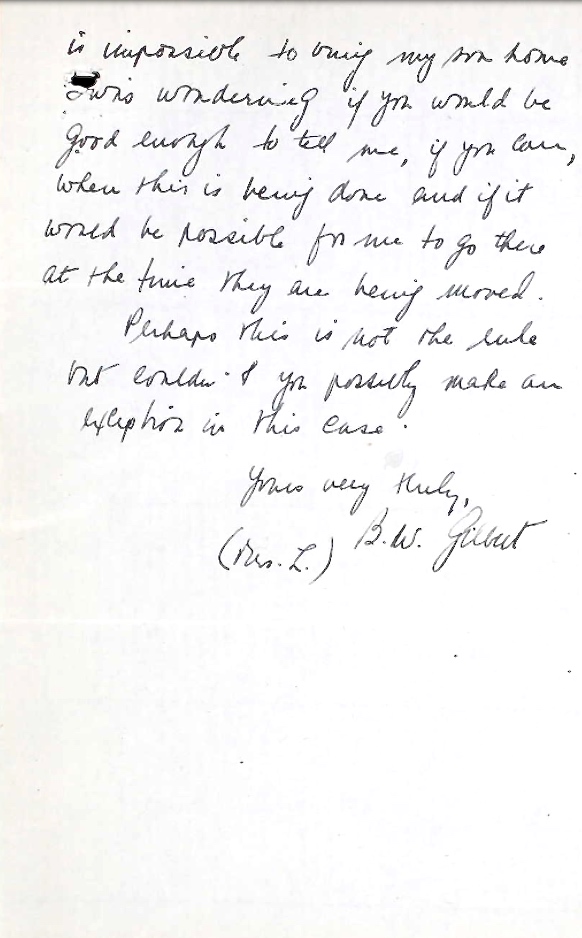 is impossible to bring my son home
I was wondering if you would be
good enough to tell me, if you can,
when this is being done and if it
would be possible for me to go there
at the time they are being moved.
Perhaps this is not the rule
but couldn't you possibly make an
exception in this case.
Yours very truly,
B.W. Gilbert
(Mrs. L.)